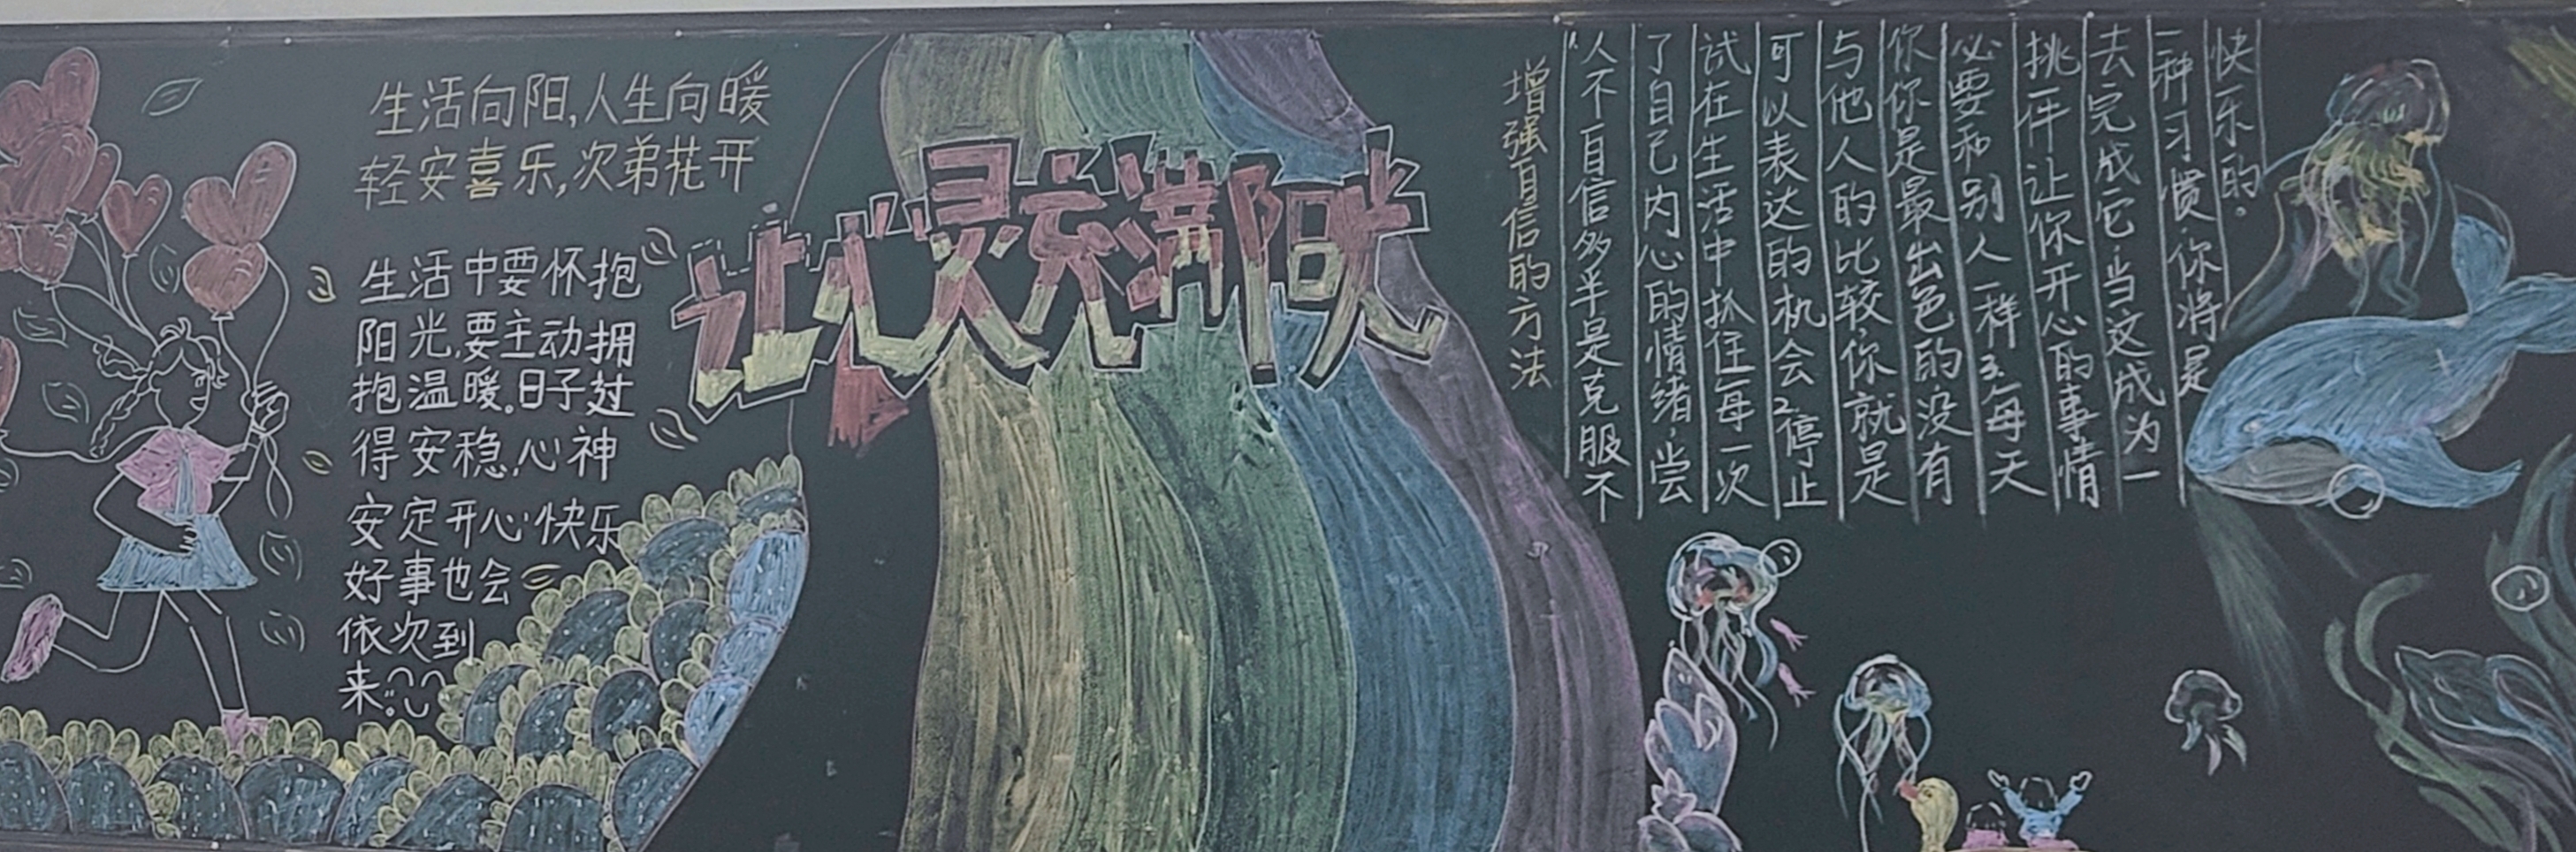 生活向阳,人生向暖
轻安喜乐,次弟花开
生活中要怀抱
阳光,要主动拥
抱温暖。日子过
得安稳,心神
安定开心快乐
好事也会
依次到
来
让心灵充满阳光
增强自信的方法
人不自信多半是克服不
了自己内心的情绪,尝
试在生活中抓住每一次
可以表达的机会2.停止
与他人的比较,你就是
你你是最出色的没有
必要和别人一样3.每天
挑一件让你开心的事情
去完成它,当这成为一
一种习惯,你将是
快乐的。